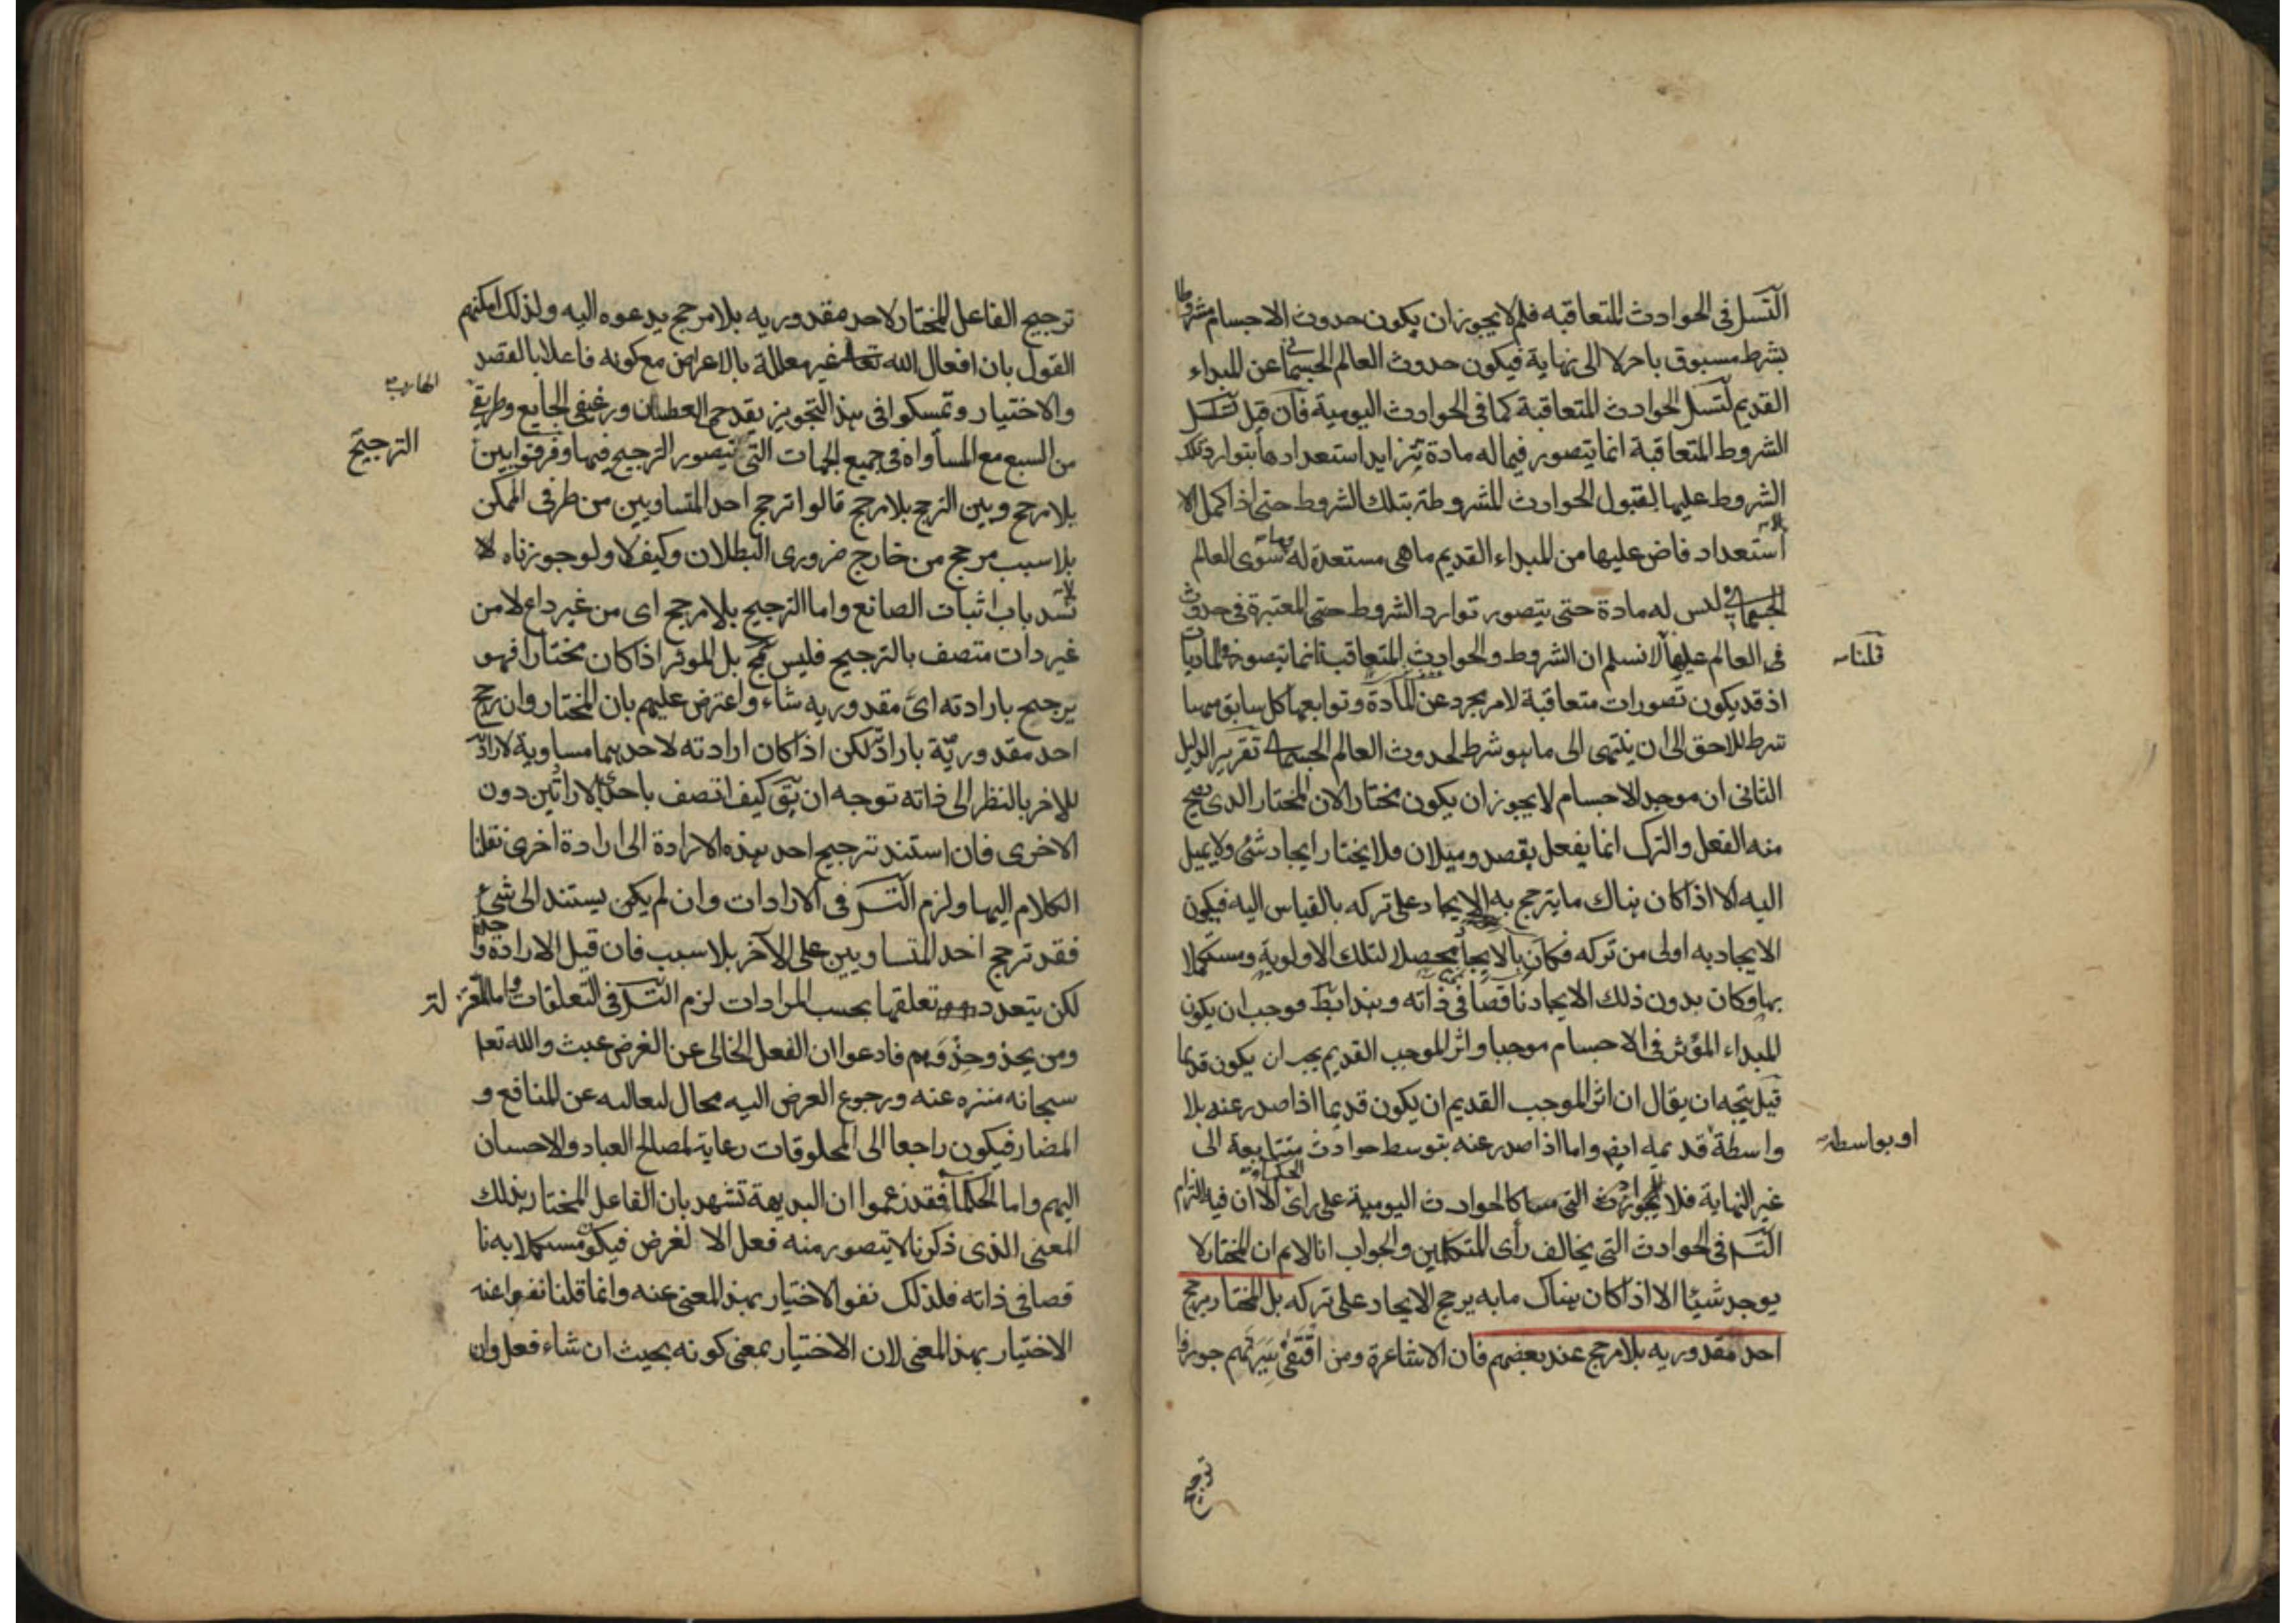 التسل فى الحوادث المتعاقبه فلم لا يجوز ان يكون حدوث الاجسام مشروطا
بشرط مسبوق باخر لا الى نهاية فيكون حدوث العالم الجسمانى عن المبداء
القديم لتسل الحوادث المتعاقبة كما فى الحوادث اليومية فان قيل تسلسل
الشروط المتعاقبة انما يتصور فيما له مادة يتزايد استعدادها بتوارد تلك
الشروط عليها لقبول الحوادث المشروطة بتلك الشروط حتى اذا كمل الا
ستعداد فاض عليها من المبداء القديم ما هى مستعدة له وما سوى العالم
الجسمانى ليس له مادة حتى يتصور توارد الشروط حتى المعتبرة فى حدوث
فى العالم عليها لا نسلم ان الشروط والحوادث المتعاقبة انما تتصور فى الماديات
قلنا
اذ قد يكون تصورات متعاقبة لامر مجرد عن المادة وتوابعها كل سابق منها
شرط للاحق الى ان ينتهى الى ما هو شرط لحدوث العالم الجسمانى تقرير الدليل
الثانى ان موجد الاجسام لا يجوز ان يكون مختارا لان المختار الذى يصح
منه الفعل والترك انما يفعل بقصد وميلان فلا يختار ايجاد شئ ولا يميل
اليه الا اذا كان هناك ما يترجح به الايجاد على تركه بالقياس اليه فيكون
الايجاد به اولى من تركه فكان بالايجاد محصلا لتلك الاولوية ومستكملا
بها وكان بدون ذلك الايجاد ناقصا فى ذاته وهذا بط فوجب ان يكون
المبداء المؤثر فى الاجسام موجبا واثر الموجب القديم يجب ان يكون قديما
قيل يتجه ان يقال ان اثر الموجب القديم ان يكون قديما اذا صدر عنه بلا
واسطة قديمه ايض واما اذا صدر عنه بتوسط حوادث متتابعة الى
او بواسطة
غير النهاية فلا كالحوادث اليومية على راى الحكماء الا ان فيه التزام
التسـ فى الحوادث التى يخالف رأى المتكلمين والجواب انا لانم ان المختار لا
يوجد شيئا الا اذا كان هناك ما به يرجح الايجاد على تركه بل المختار يرجح
احد مقدوريه بلا مرجح عند بعضهم فان الاشاعرة ومن اقتفى سيرتهم جوزوا
ترجيح
ترجيح الفاعل المختار لاحد مقدوريه بلا مرجح يدعوه اليه ولذلك امكنهم
القول بان افعال الله تعالى غير معللة بالاعراض مع كونه فاعلا بالقصد
والاختيار وتمسكوا فى هذا التجويز بقدحى العطشان ورغيفى الجايع وطريقى
الهارب
من السبع مع المساواة فى جميع الجهات التى يتصور الترجيح فيها وفرقوا بين
الترجيح
بلا مرجح وبين الترجح بلا مرجح قالوا ترجح احد المتساويين من طرفى الممكن
بلا سبب مرجح من خارج ضرورى البطلان وكيف لا ولو جوزناه لا
نسد باب اثبات الصانع واما الترجيح بلا مرجح اى من غير داع لا من
غير ذات متصف بالترجيح فليس بل الموثر اذا كان مختارا فهو
يرجح بارادته اى مقدوريه شاء واعترض عليهم بان المختار وان رجح
احد مقدوريه بارادته لكن اذا كان ارادته لاحدهما مساوية لارادته
للاخر بالنظر الى ذاته توجه ان يق كيف اتصف باحدى الارادتين دون
الاخرى فان استند ترجيح احد هذه الارادة الى ارادة اخرى نقلنا
الكلام اليها ولزم التسـ فى الارادات وان لم يكن يستند الى شئ
فقد ترجح احد المتساويين على الآخر بلا سبب فان قيل الارادة واحدة
لكن يتعدد تعلقها بحسب المرادات لزم التسـ فى التعلقات واما المعتزلة
ومن يحذو حذوهم فادعوا ان الفعل الخالى عن الغرض عبث والله تعا
سبحانه منزه عنه ورجوع الغرض اليه محال لتعاليه عن المنافع و
المضار فيكون راجعا الى المخلوقات رعاية لمصالح العباد والاحسان
اليهم واما الحكماء فقد زعموا ان البديهة تشهد بان الفاعل المختار بذلك
المعنى الذى ذكرنا لا يتصور منه فعل الا لغرض فيكون مستكملا به نا
قصا فى ذاته فلذلك نفوا الاختيار بهذا المعنى عنه وانما قلنا نفوا عنه
الاختيار بهذا المعنى لان الاختيار بمعنى كونه بحيث ان شاء فعل وان